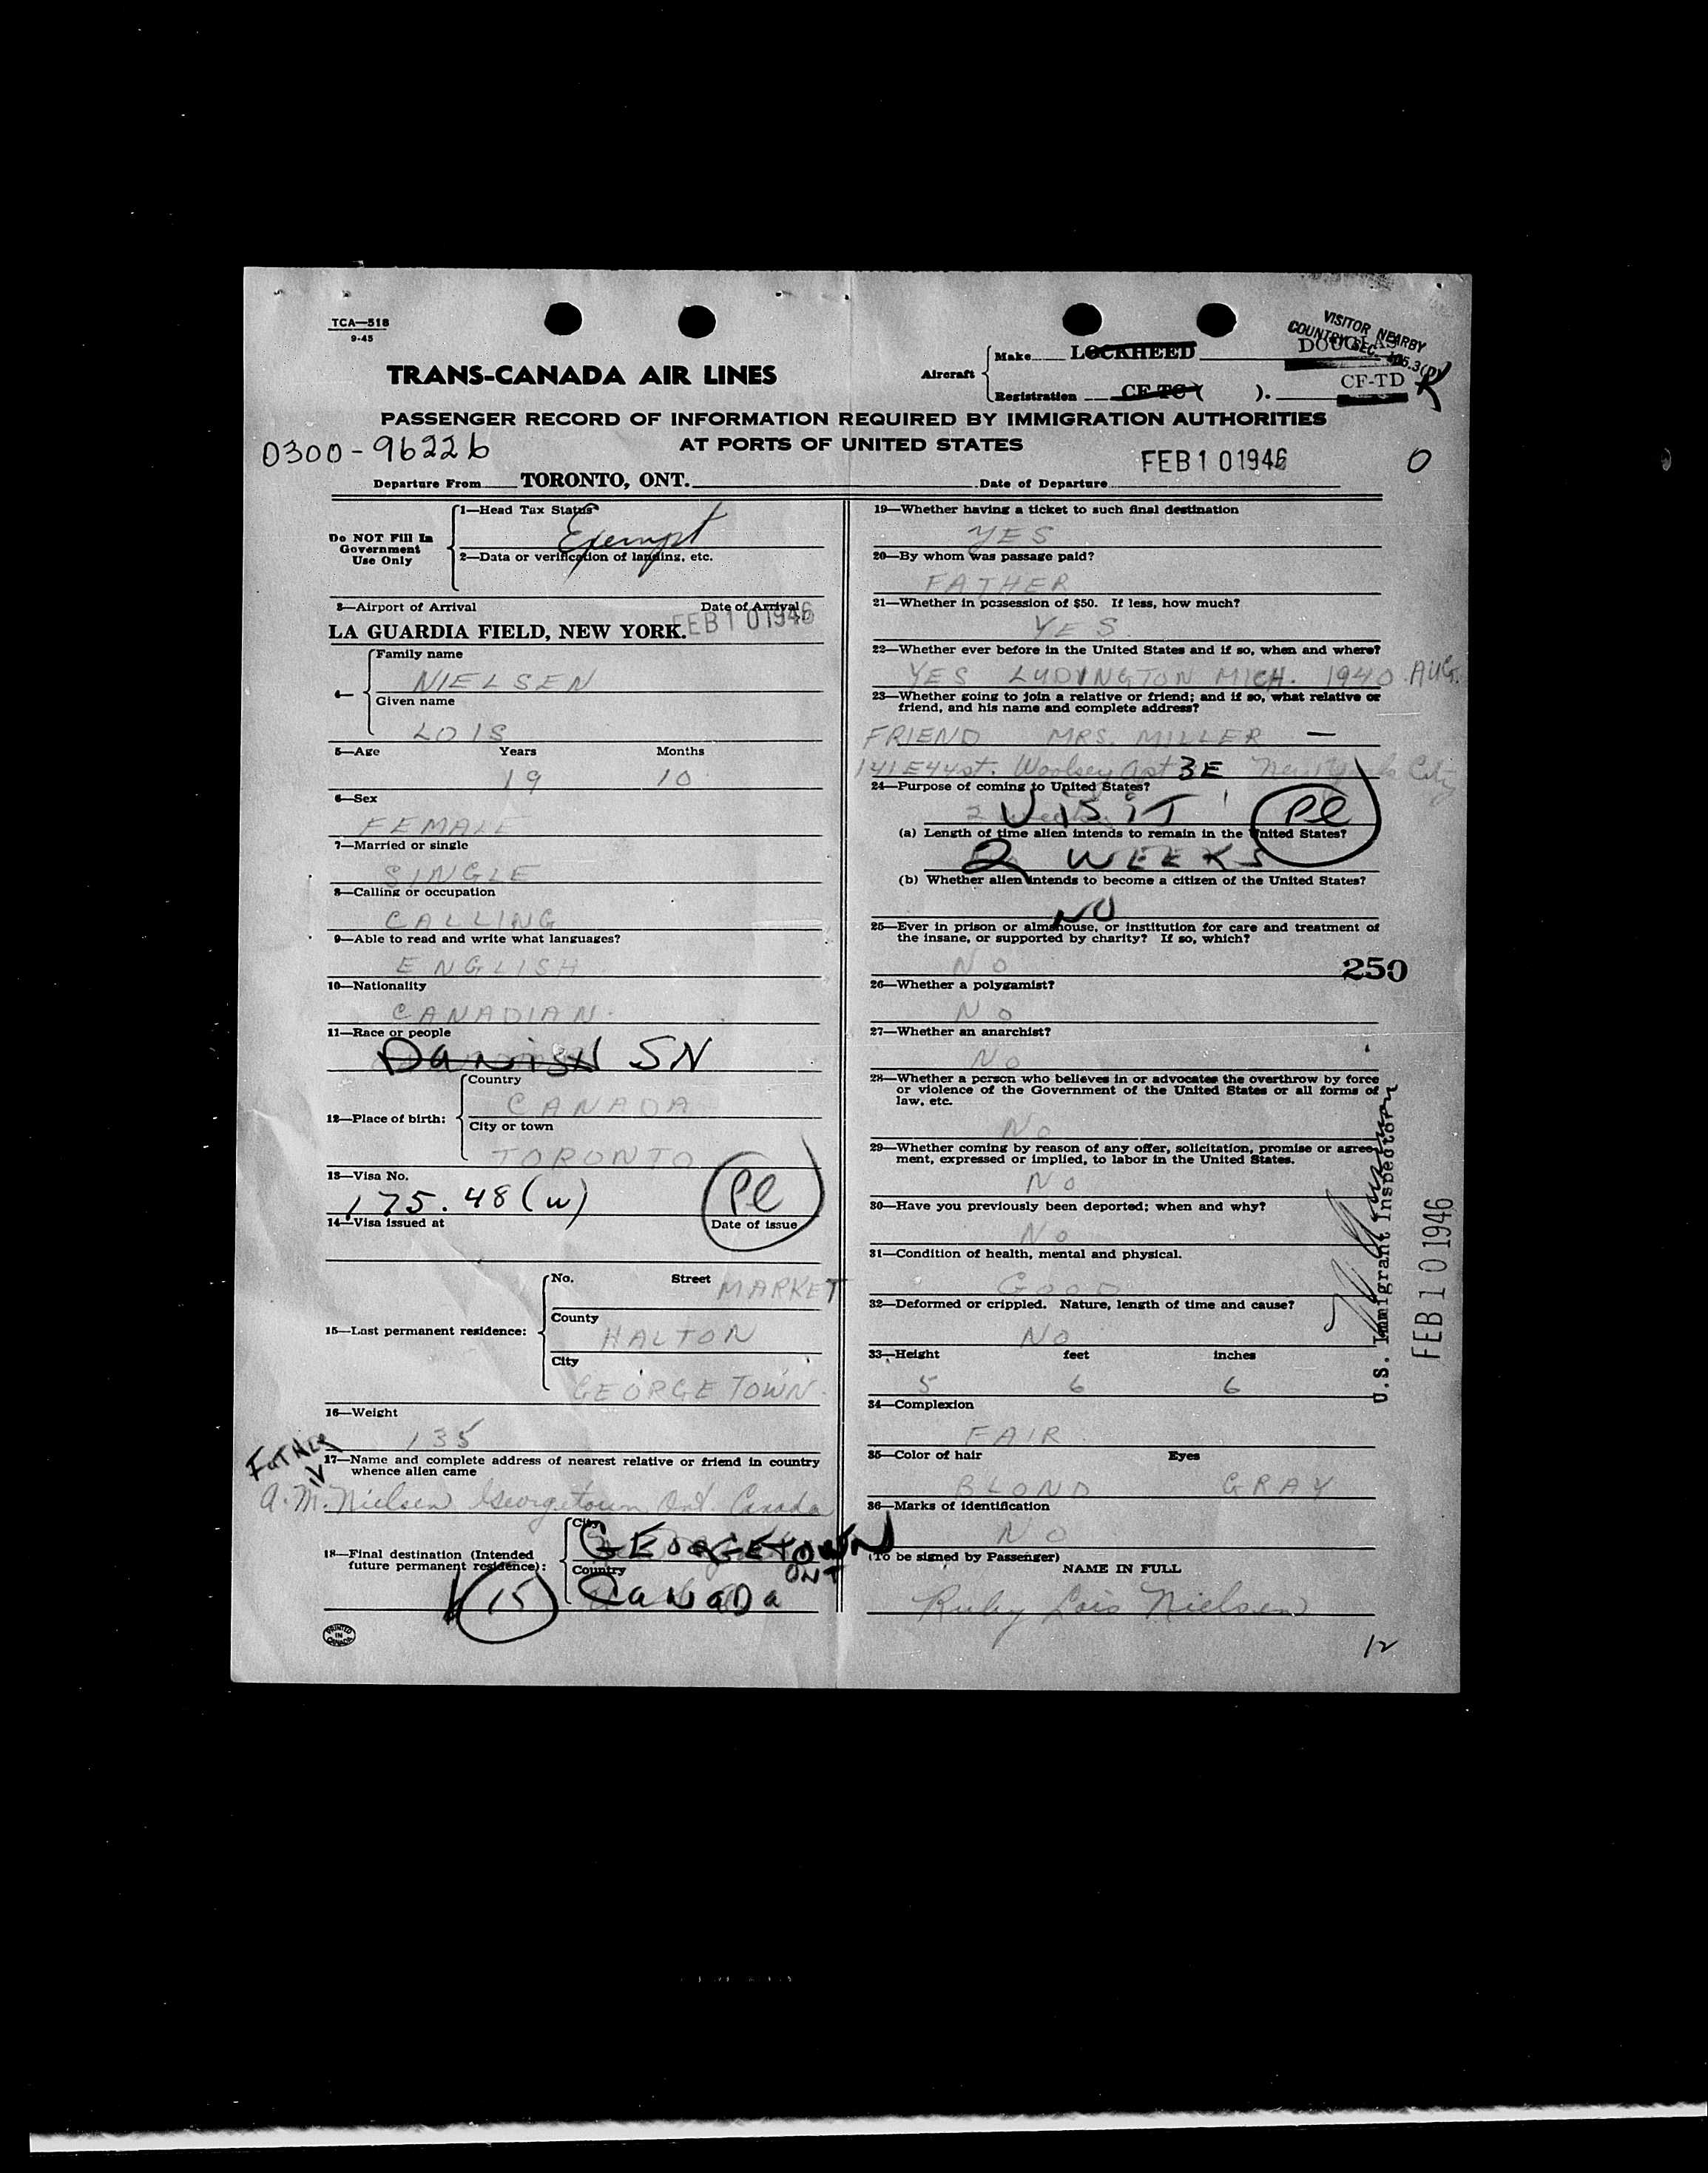 TCA—518
9-45
VISITOR NEARBY
COUNTRY SEC.
TRANS-CANADA AIR LINES
Aircraft
Make LOCKHEED DOUGLAS
Registration CF-TC ( ). CF-TD
PASSENGER RECORD OF INFORMATION REQUIRED BY IMMIGRATION AUTHORITIES
AT PORTS OF UNITED STATES
0300-96226
FEB 10 1946
0
Departure From TORONTO, ONT. Date of Departure
Do NOT Fill In
Government
Use Only
1—Head Tax Status
Exempt
2—Data or verification of landing, etc.
3—Airport of Arrival Date of Arrival
LA GUARDIA FIELD, NEW YORK. FEB 10 1946
4—
Family name
NIELSEN
Given name
LOIS
5—Age Years Months
19 10
6—Sex
FEMALE
7—Married or single
SINGLE
8—Calling or occupation
CALLING
9—Able to read and write what languages?
ENGLISH
10—Nationality
CANADIAN.
11—Race or people
DANISH SN
12—Place of birth:
Country
CANADA
City or town
TORONTO
13—Visa No.
175.48 (w) Pl
14—Visa issued at Date of issue
15—Last permanent residence:
No. Street MARKET
County
HALTON
City
GEORGETOWN.
16—Weight
135
FATHER
17—Name and complete address of nearest relative or friend in country
whence alien came
A. M. Nielsen Georgetown, Ont. Canada
18—Final destination (Intended
future permanent residence):
City
GEORGETOWN
ONT
Country
CANADA
15
PRINTED
IN
CANADA
19—Whether having a ticket to such final destination
YES
20—By whom was passage paid?
FATHER
21—Whether in possession of $50. If less, how much?
YES
22—Whether ever before in the United States and if so, when and where?
YES LUDINGTON MICH. 1940. AUG.
23—Whether going to join a relative or friend; and if so, what relative or
friend, and his name and complete address?
FRIEND MRS. MILLER —
141 E 44 st. Woolsey Apt 3E New York City
24—Purpose of coming to United States?
VISIT Pl
(a) Length of time alien intends to remain in the United States?
2 WEEKS
(b) Whether alien intends to become a citizen of the United States?
NO
25—Ever in prison or almshouse, or institution for care and treatment of
the insane, or supported by charity? If so, which?
NO
250
26—Whether a polygamist?
NO
27—Whether an anarchist?
NO
28—Whether a person who believes in or advocates the overthrow by force
or violence of the Government of the United States or all forms of
law, etc.
NO
29—Whether coming by reason of any offer, solicitation, promise or agree-
ment, expressed or implied, to labor in the United States.
NO
30—Have you previously been deported; when and why?
NO
31—Condition of health, mental and physical.
GOOD
32—Deformed or crippled. Nature, length of time and cause?
NO
33—Height feet inches
5 6 6
34—Complexion
FAIR
35—Color of hair Eyes
BLOND GRAY
36—Marks of identification
NO
(To be signed by Passenger)
NAME IN FULL
Ruby Lois Nielsen
12
U.S. Immigrant Inspector
FEB 10 1946